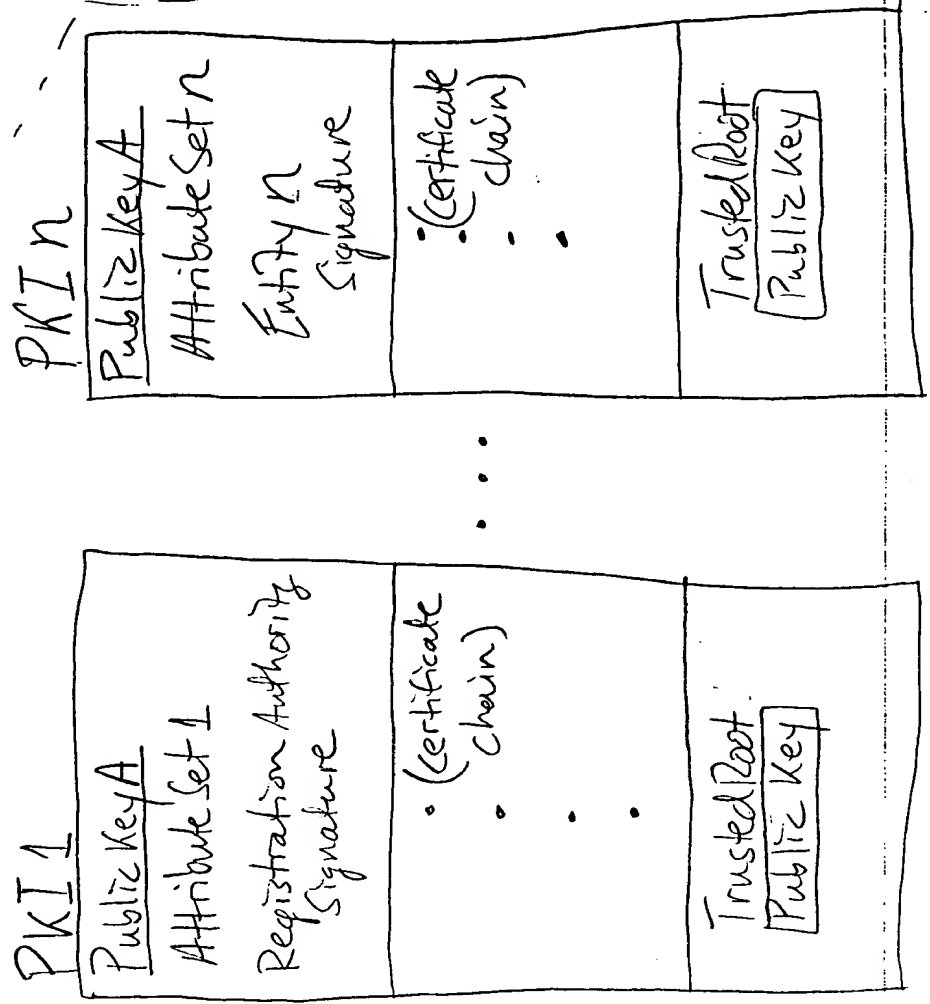 PKI 1
Public Key A
Attribute Set 1
Registration Authority
Signature
(certificate
chain)
Trusted Root
Public Key
PKI n
Public Key A
Attribute Set n
Entity n
Signature
(certificate
chain)
Trusted Root
Public Key